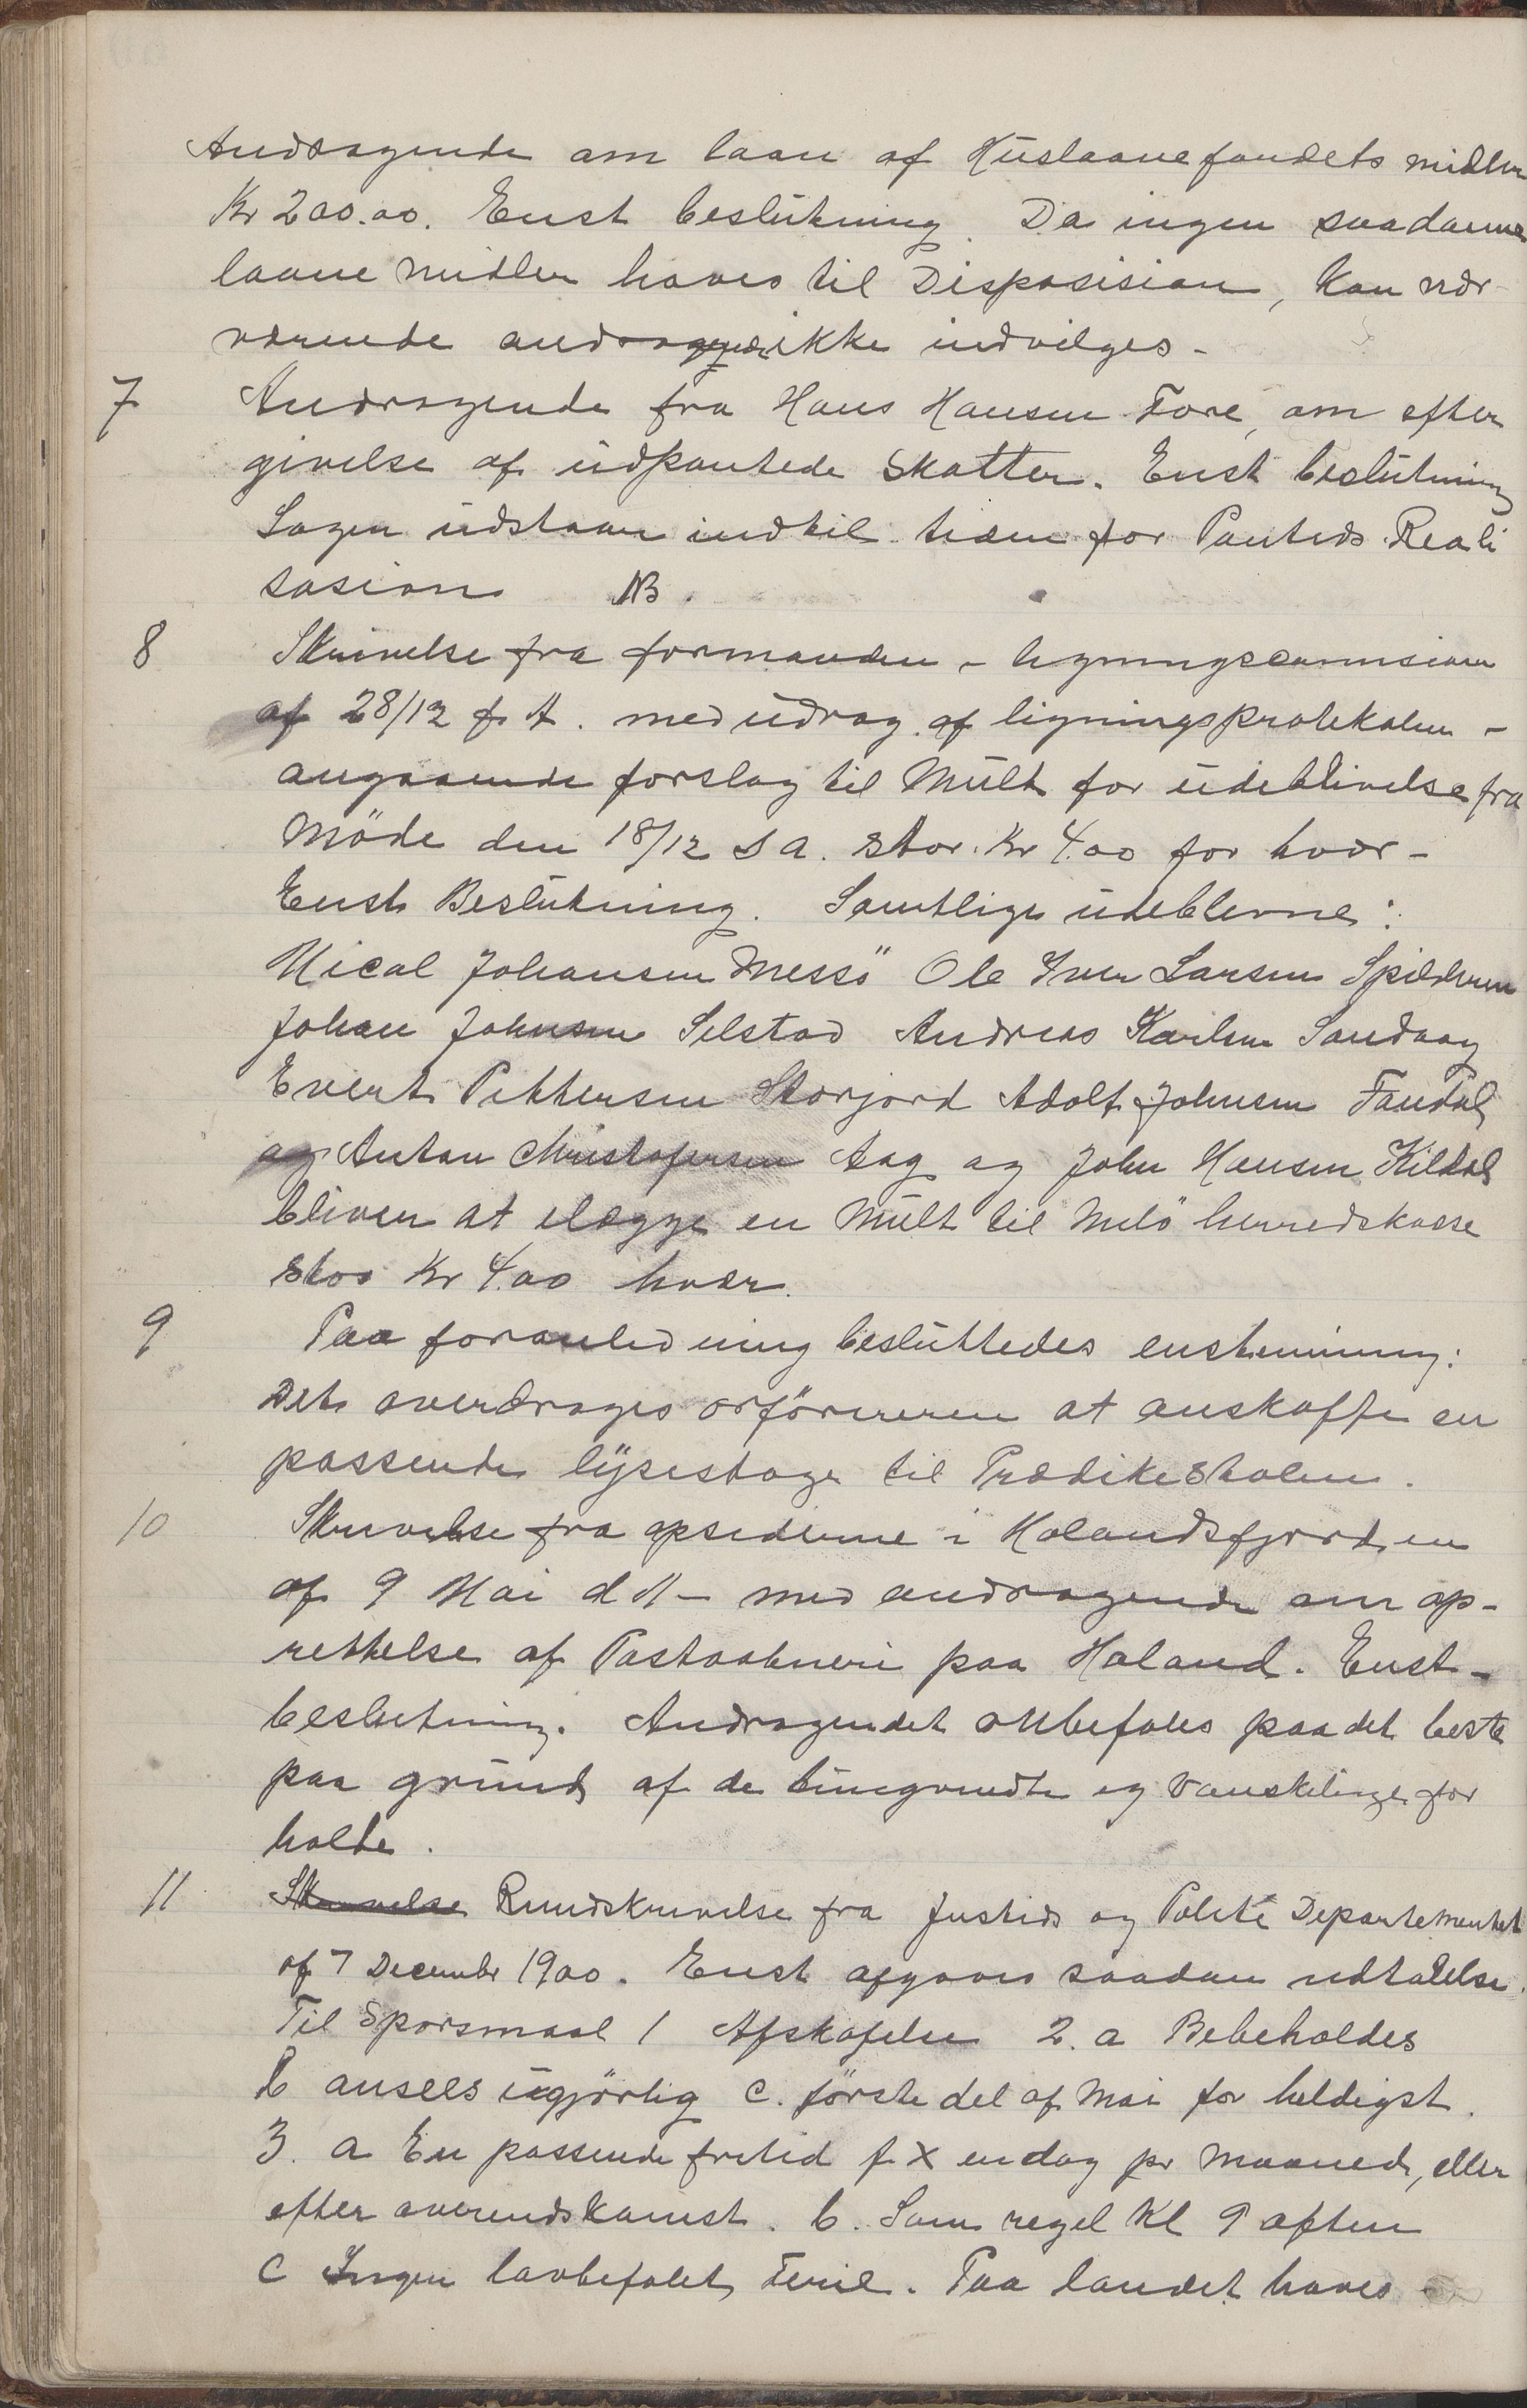 Andragende om laan af Huslaanefondets midler
Kr 200.00. Enst beslutning. Da ingen saadanne
laane midler haves til Disposision, kan nær-
værende andrag ikke indvilges -
7 Andragende fra Hans Hansen Fore, om efter
givelse af udpantede Skatter. Enst beslutning
Sagen udstaar indtil tiden for Pantets Reali
sasion NB.
8 Skrivelse fra formanden - ligningscomision
af 28/12 f. A. med udrag af ligningsprotokolen -
angaaende forslag til Mult for udeblivelse fra
Möde den 18/12 s a. stor. Kr 4.00 for hver -
Enst Beslutning. Samtlige udeblevne:
Mical Johansen Messö Ole Iver Larsen Spilderen
Johan Johnsen Selstad Andreas Karlsen Sandaag
Evert Pettersen Storjord Adolf Johnsen Fandal
og Anton Christofersen Aag og John Hansen Kildal
bliver at elægge en Mult til Melö herredskasse
stor Kr 4.00 hver.
9 Paa foranledning besluttedes enstemmig:
Det overdrages orföreren at anskaffe en
passende lysestage til Prædikestolen.
10 Skrivelse fra opsiderne i Holandsfjorden
af 9 Mai d A - med andragende om op-
rettelse af Postaabneri paa Holand. Enst-
beslutning. Andragendet anbefales paa det beste
paa grund af de brugendte og vanskelige for
holde.
11 Skrivelse Rundskrivelse fra Justids og Politi Departementet
af 7 Decembr 1900. Enst afgaves saadan udtalelse.
Til Sporsmaal 1 Afskafelse 2. a Bebeholdes
b ansees ugjörlig c. förste del af Mai for heldigst.
3. a En passende fritid f. X en dag pr Maaned, eller
efter overendskomst. b. Som regel Kl 9 aften
c Ingen lovbefalet Ferie. Paa landet haves